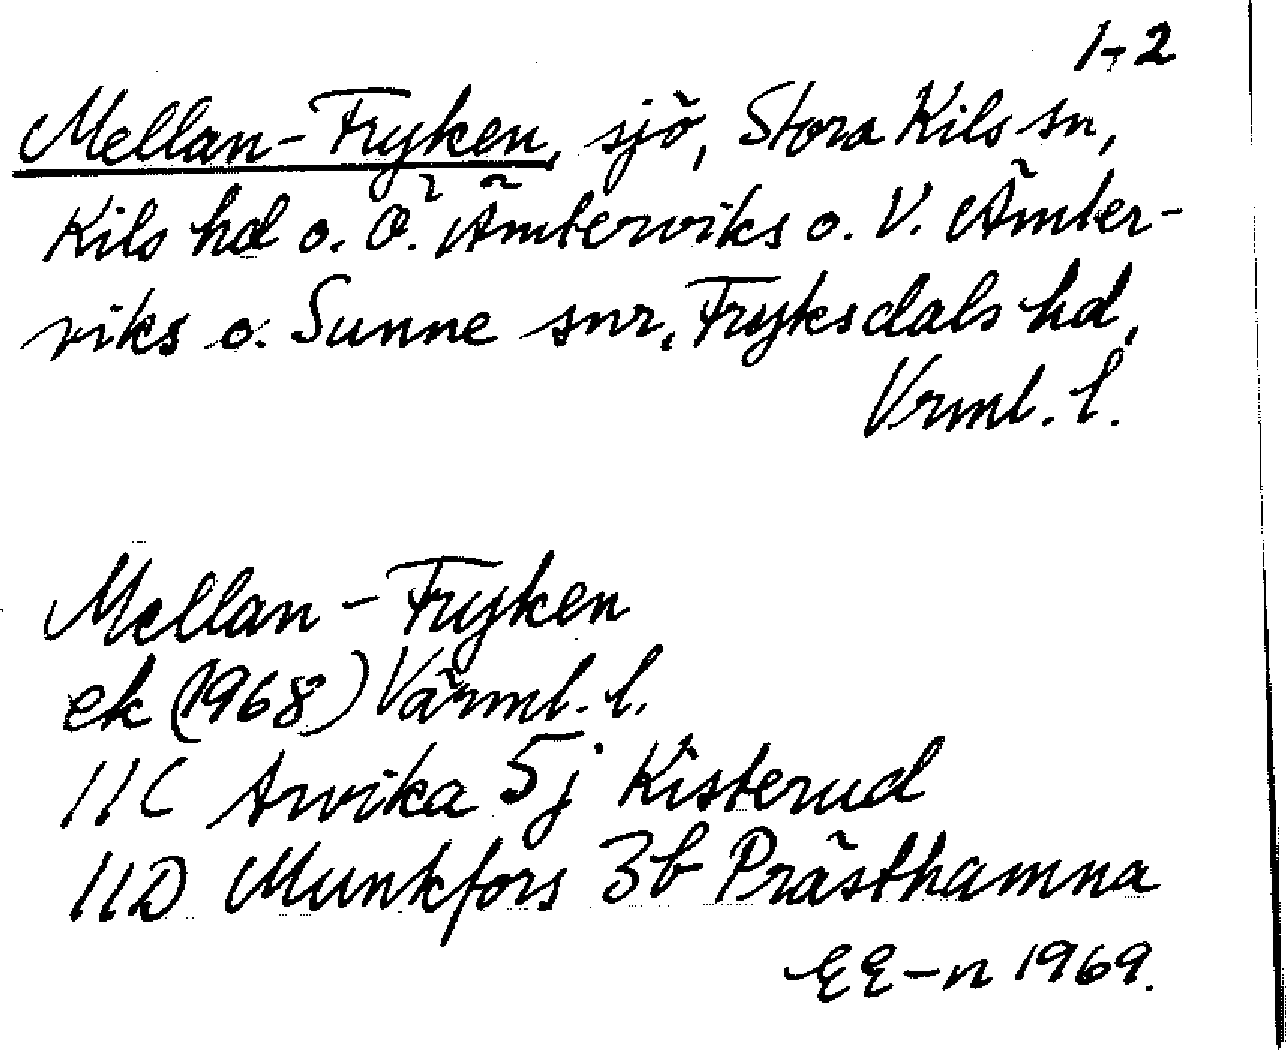 1-2
Mellan-Fryken, sjö, Stora Kils sn,
Kils hd o. Ö. Ämterviks o. V. Ämter-
viks o. Sunne snr, Fryksdals hd,
Vrml. l.
Mellan-Fryken
ek (1968) Värml. l.
11C Arvika 5j Kisterud
11D Munkfors 3b Prästhamna
EE-n 1969.